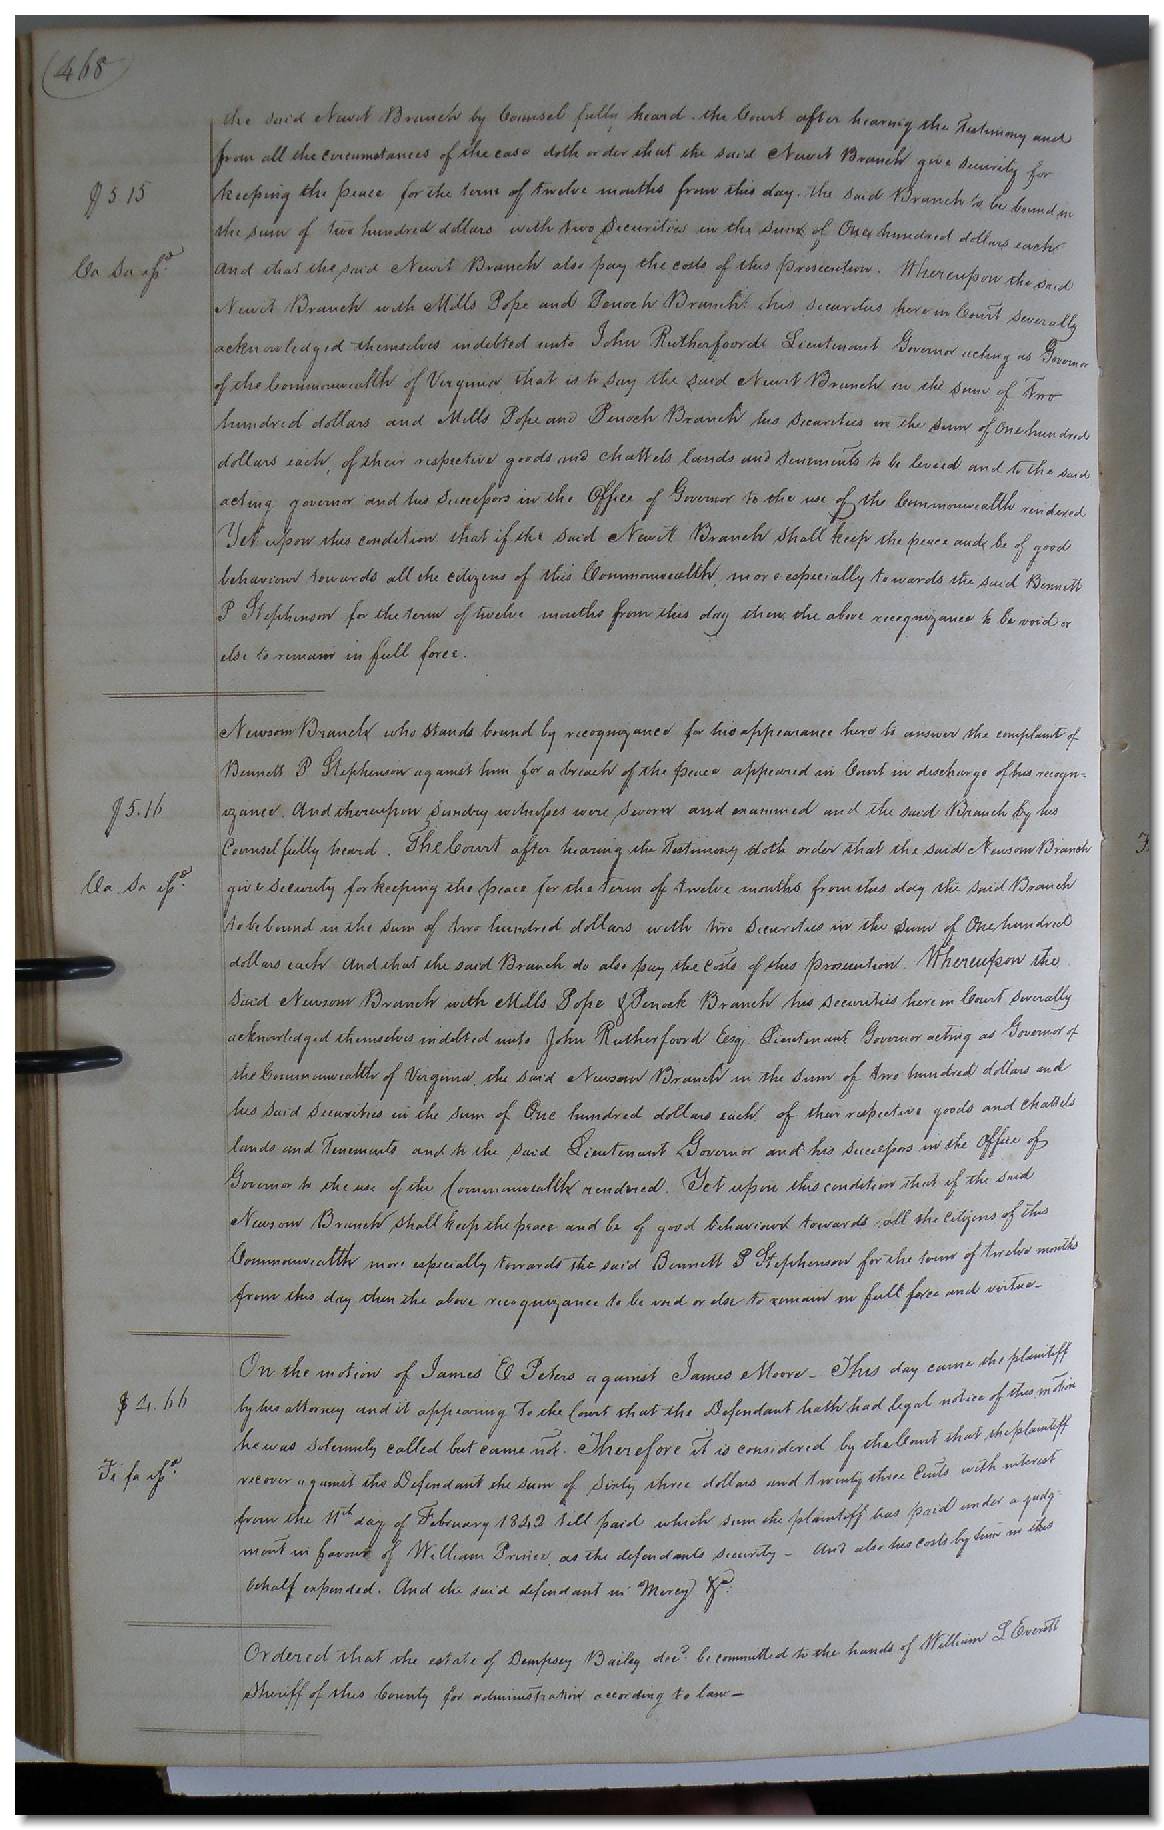 (468)
the said Newit Branch by Counsel fully heard. the Court after hearing the Testimony and
from all the circumstances of the case doth order that the said Newit Branch give security for
keeping the peace for the term of twelve months from this day. the said Branch to be bound in
$5.15
the sum of two hundred dollars with two Securities in the sum of One hundred dollars each
And that the said Newit Branch also pay the costs of this prosecution. Whereupon the said
Ca Sa issd
Newit Branch with Mills Pope and Penoch Branch his securities here in Court severally
acknowledged themselves indebted unto John Rutherfoord Lieutenant Governor acting as Governor
of the Commonwealth of Virginia, that is to say the said Newit Branch in the sum of Two
hundred dollars and Mills Pope and Penoch Branch his Securities in the sum of One hundred
dollars each, of their respective goods and chattels lands and tenements to be levied and to the said
acting governor and his Successors in the Office of Governor to the use of the Commonwealth rendered
Yet upon this condition that if the said Newit Branch shall keep the peace and be of good
behaviour towards all the citizens of this Commonwealth, more especially towards the said Bennett
P Stephenson for the term of twelve months from this day then the above recognizance to be void or
else to remain in full force.
Newsom Branch who stands bound by recognizance for his appearance here to answer the complaint of
Bennett P Stephenson against him for a breach of the peace appeared in Court in discharge of his recogn-
$5.16
izance. And thereupon Sundry witnesses were sworn and examined and the said Branch by his
Counsel fully heard. The Court after hearing the Testimony doth order that the said Newsom Branch
Ca. Sa issd
give security for keeping the peace for the term of twelve months from this day the said Branch
to be bound in the sum of two hundred dollars with two Securities in the sum of One hundred
dollars each And that the said Branch do also pay the costs of this prosecution. Whereupon the
said Newsom Branch with Mills Pope & Penock Branch his securities here in Court severally
acknowledged themselves indebted unto John Rutherfoord Esq. Lieutenant Governor acting as Governor of
the Commonwealth of Virginia, the said Newsom Branch in the sum of two hundred dollars and
his said securities in the sum of One hundred dollars each, of their respective goods and chattels
lands and tenements and to the said Lieutenant Governor and his successors in the Office of
Governor to the use of the Commonwealth rendered. Yet upon this condition that if the said
Newsom Branch shall keep the peace and be of good behaviour towards all the citizens of this
Commonwealth more especially towards the said Bennett P Stephenson for the term of twelve months
from this day then the above recognizance to be void or else to remain in full force and virtue-
On the motion of James E Peters against James Moore - This day came the plaintiff
$4.66
by his attorney and it appearing to the Court that the Defendant hath had legal notice of this motion
he was solemnly called but came not. Therefore it is considered by the Court that the plaintiff
Fi fa issd
recover against the Defendant the sum of Sixty three dollars and twenty three cents with interest
from the 11th day of February 1842 till paid which sum the plaintiff has paid under a judg-
ment in favour of William Prince, as the defendants security - And also his costs by him in this
behalf expended. And the said defendant in Mercy &c.
Ordered that the estate of Dempsey Bailey decd. be committed to the hands of William L Everett
Sheriff of this County for administration according to law-